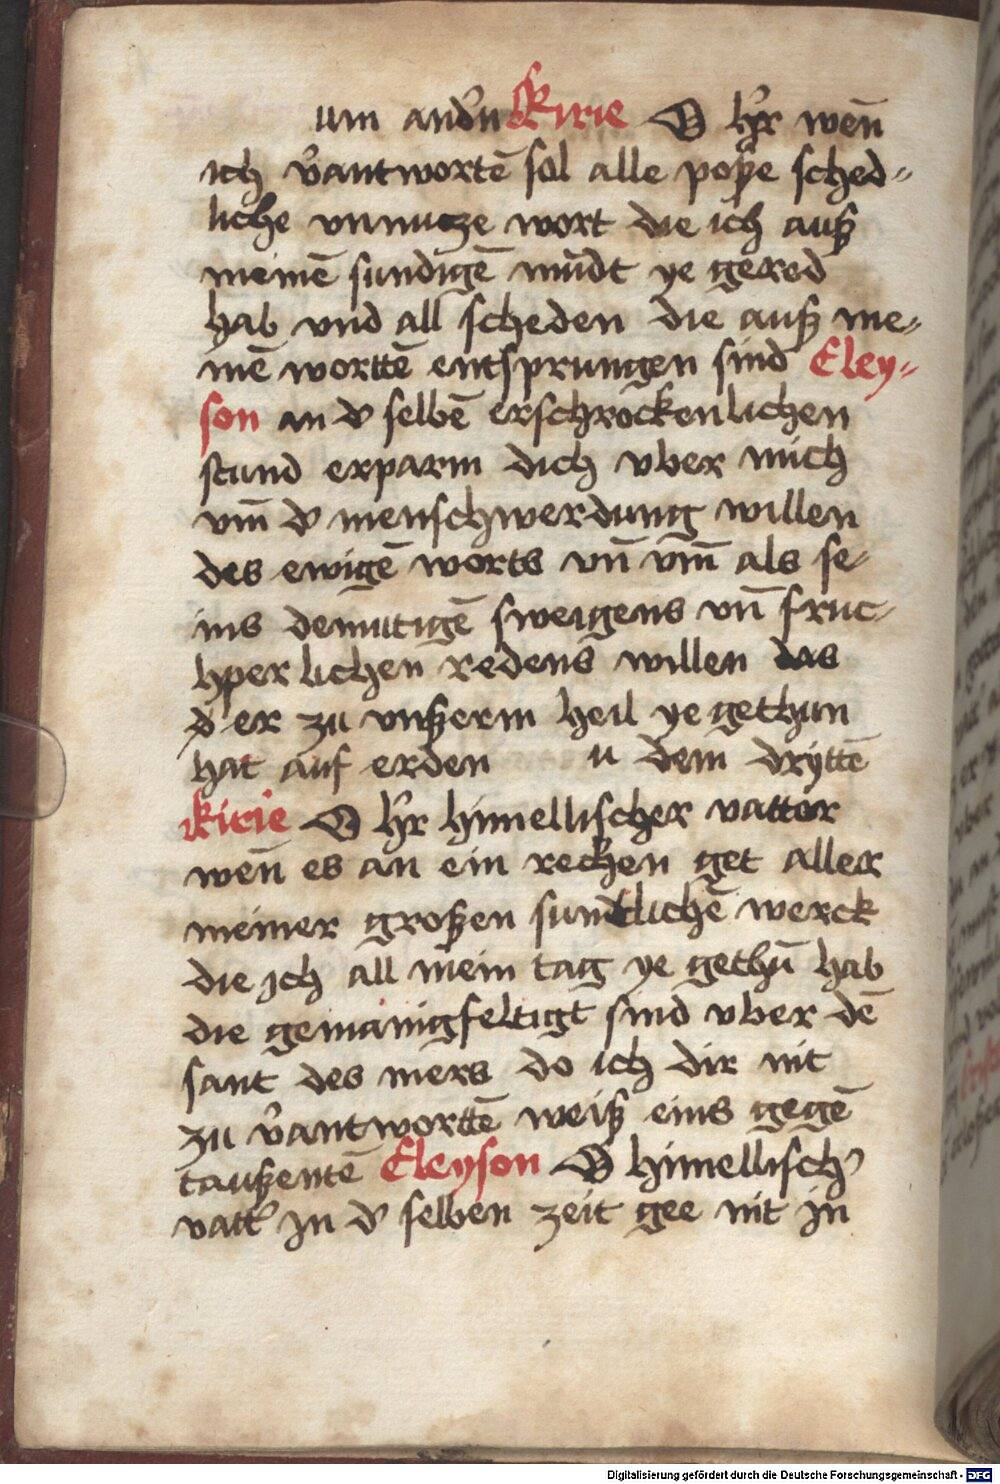 um and'n Kirie O h'r wen̄
ich v'antwortē sol alle poße sched-
liche vnnucze wort die ich auß
meinē sundigē mūdt ye gered
hab vnd all scheden die auß me-
inē worttē entsprungen sind Eley-
son an d' selbē erschrockenlichen
stund erparm dich vber mich
vm̄ d' menschwerdung willen
des ewigē worts vn̄ vm̄ als se-
ins demutigē sweigens vn̄ fruc-
hperlichen redens willen das
er zu vnßerm heil ye gethun
hat auf erden u dem dryttē
kirie O h'r himellischer vatter
wen̄ es an ein rechen get aller
meiner großen suntlichē werck
die jch all mein tag ye gethū hab
die gemanigfeltigt sind vber dē
sant des mers do ich dir nit
zu v'antworttē weiß eins gegē
taußentē Eleyson O himellisch'
vatt' jn d' selben zeit gee nit jn
Digitalisierung gefördert durch die Deutsche Forschungsgemeinschaft - DFG